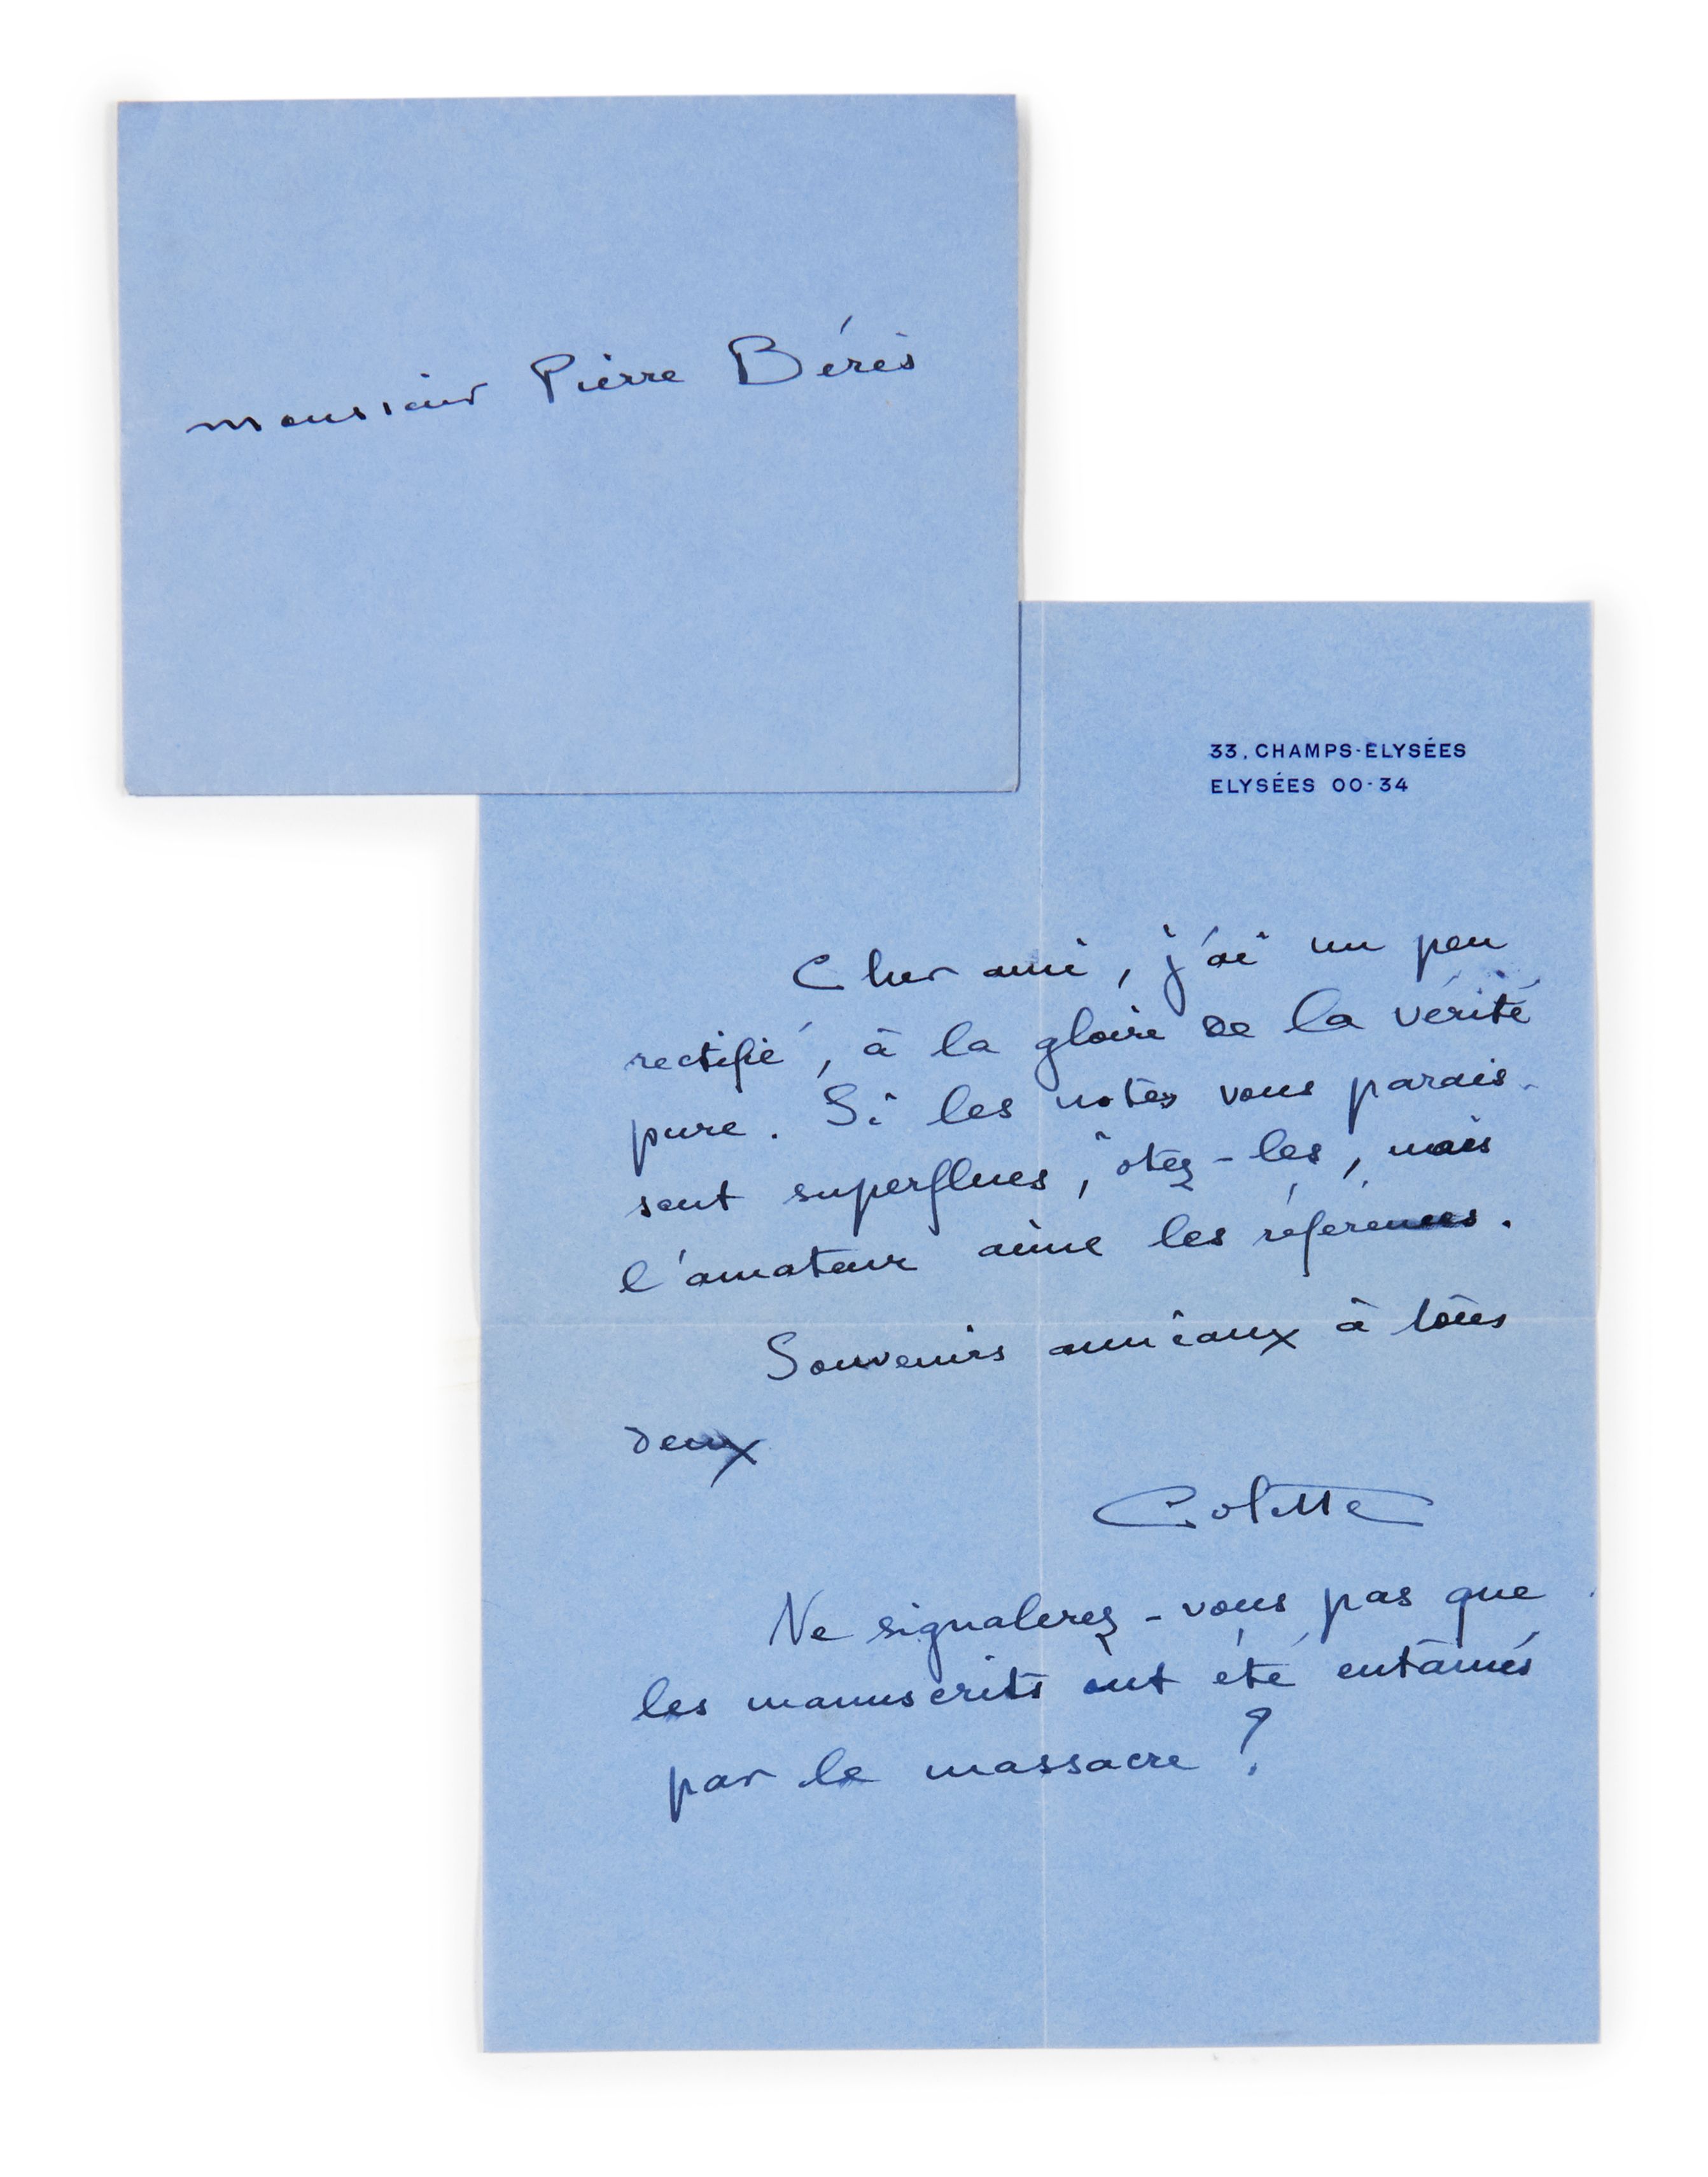 Monsieur Pierre Bérès
33, CHAMPS-ELYSÉES
ELYSÉES 00-34
Cher ami, j'ai un peu
rectifié, à la gloire de la vérité
pure. Si les notes vous parais-
sent superflues, ôtez-les, mais
l'amateur aime les références.
Souvenirs amicaux à tous
deux
Colette
Ne signalerez-vous pas que
les manuscrits ont été entamés
par le massacre ?